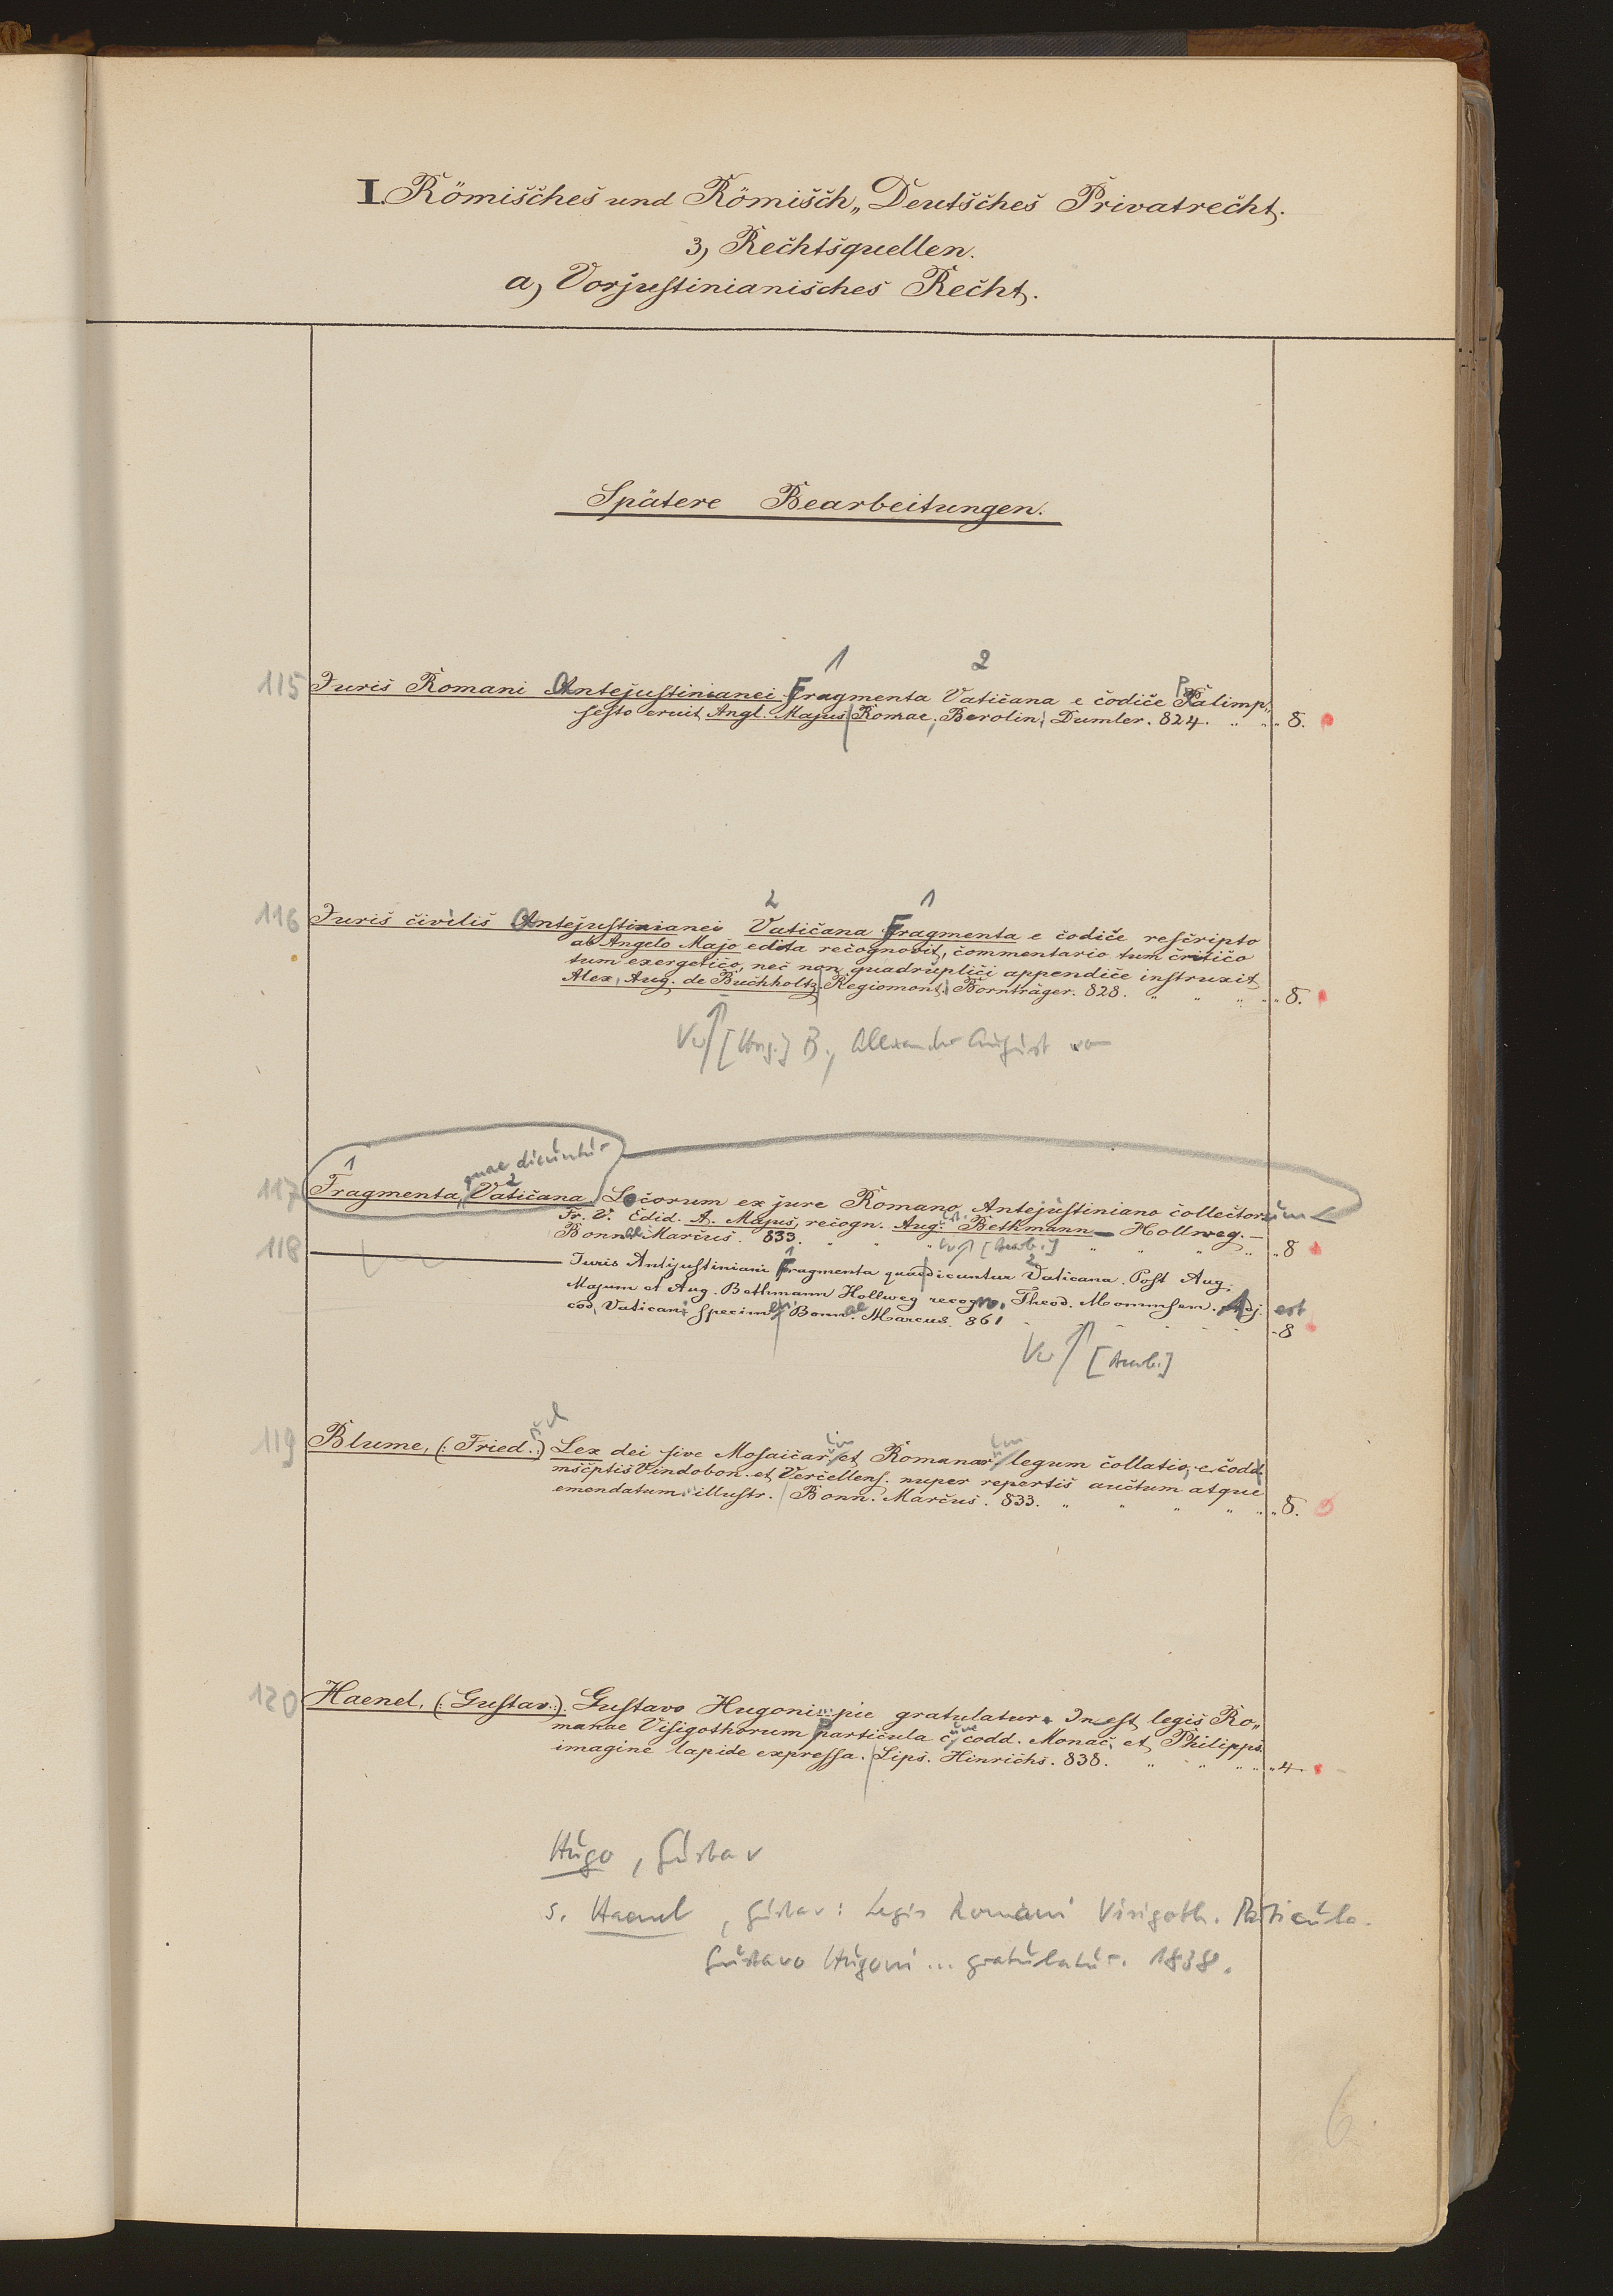 I. Römisches und Römisch„ Deutsches Privatrecht.
3, Rechtsquellen.
a, Vorjustinianisches Recht.
Spätere Bearbeitungen.
1 2
115 Juris Romani Antejustinianei Fragmenta Vaticana e codice Palimp„
sesto eruit Angl. Majus Romae, Berolin, Dumler. 824. „ „ „ 8.
2 1
116 Juris civilis Antejustinianei Vaticana Fragmenta e codice rescripto
ab Angelo Majo edita recognovit, commentario tum critico
tum exergetico, nec non quadruplici appendice instruxit
Alex. Aug. de Buchholtz. Regiomont. Bornträger. 828. „ „ „ „ 8.
Vw [Hrsg.] B., Alexander August von
1 quae dicuntur
2
117 Fragmenta Vaticana Locorum ex jure Romano Antejustiniano collectorum
Fr. V. Edid. A. Majus, recogn. Aug. Bethmann-Hollweg. –
Bonnae Marcus. 833. „ „ „ „ 8
Vw [Bearb.]
118 Juris Antijustiniani Fragmenta quae dicuntur Vaticana. Post Aug.
1 2
Majum et Aug. Bethmann Hollweg recogn. Theod. Mommsen. Adj. est
cod. Vaticani specimen Bonnae. Marcus. 861 - 8
Vw [Bearb.]
119 Blume, (: Fried. :) Lex dei sive Mosaicar et Romanar legum collatio, e codd.
mscptis Vindobon. et Vercellens. nuper repertis auctum atque
emendatum illustr. Bonn. Marcus. 833. „ „ „ „ „ 8.
120 Haenel, (: Gustav. :) Gustavo Hugoni pie gratulatur. Inest legis Ro„
manae Visigothorum Particula c. codd. Monac. et Philipps.
imagine lapide expressa. Lips. Hinrichs. 838. „ „ „ „ 4.
Hugo, Gustav
s. Haenel, Gustav: Legis Romani Visigoth. Particula.
Gustavo Hugoni ... gratulatur. 1838.
6.